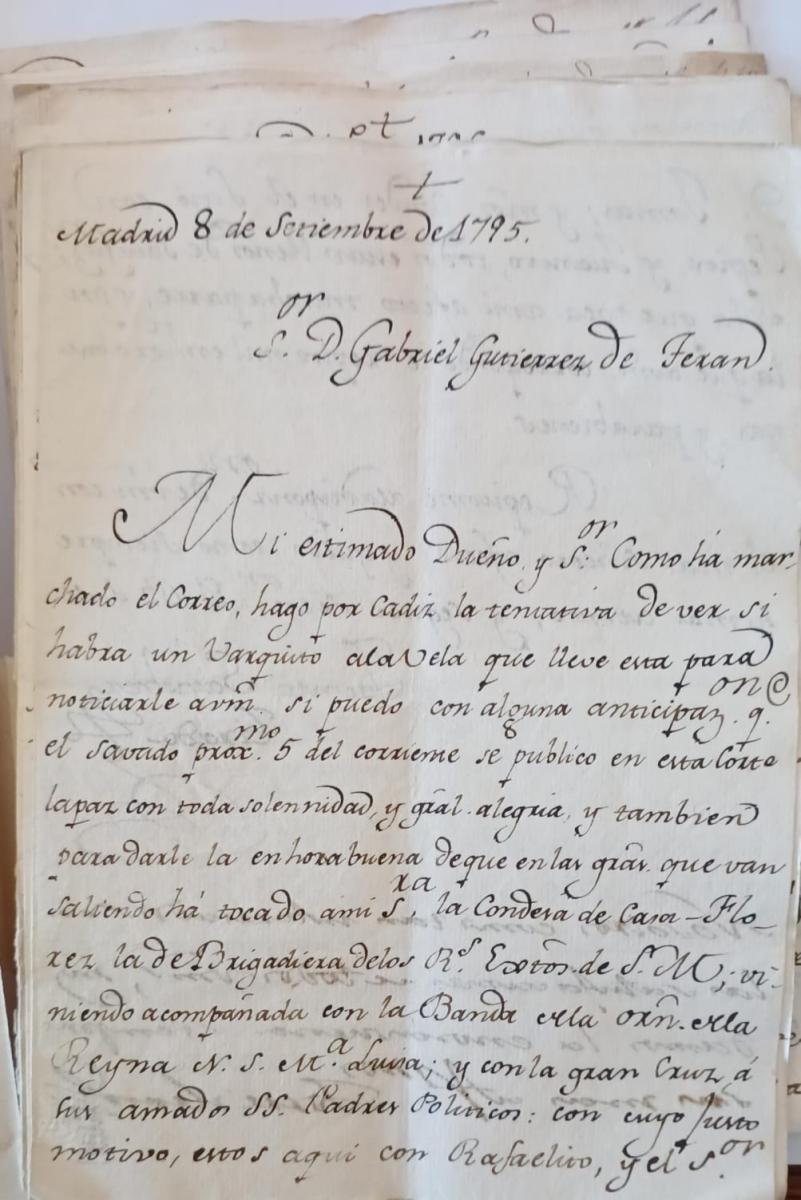 +
Madrid 8 de Setiembre de 1795.
S.or D. Gabriel Gutierrez de Teran.
Mi estimado Dueño, y S.or Como há mar-
chado el Correo, hago por Cadiz la tentativa de ver si
habra un Varquito ala Vela que lleve esta para
noticiarle avm. si puedo con alguna anticipaz.on q.e
el savado prox.mo 5 del corriente se publico en esta Corte
la paz con toda solennidad, y gral. alegria, y tambien
para darle la enhorabuena de que en las gras. que van
saliendo há tocado ami S.ra, la Condesa de Casa-Flo-
rez la de Brigadiera delos R.s Extos. de S. M.; vi-
niendo acompañada con la Banda dela orn. dela
Reyna N. S. M.a Luisa; y con la gran Cruz á
sus amados SS. Padres Politicos: con cuyo justo
motivo, estos aqui con Rafaelito, y el S.or